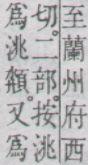 至蘭州府西
切。二部。按洮
爲洮纇。又爲